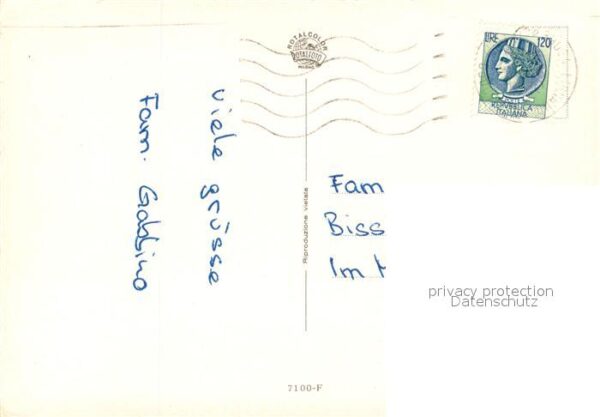 ROTALCOLOR
ROTALFOTO
MILANO
LIRE 120
REPUBBLICA
ITALIANA
Viele grüsse
Fam. Gabbino
Riproduzione vietata
Fam
Biss
Im
privacy protection
Datenschutz
7100-F